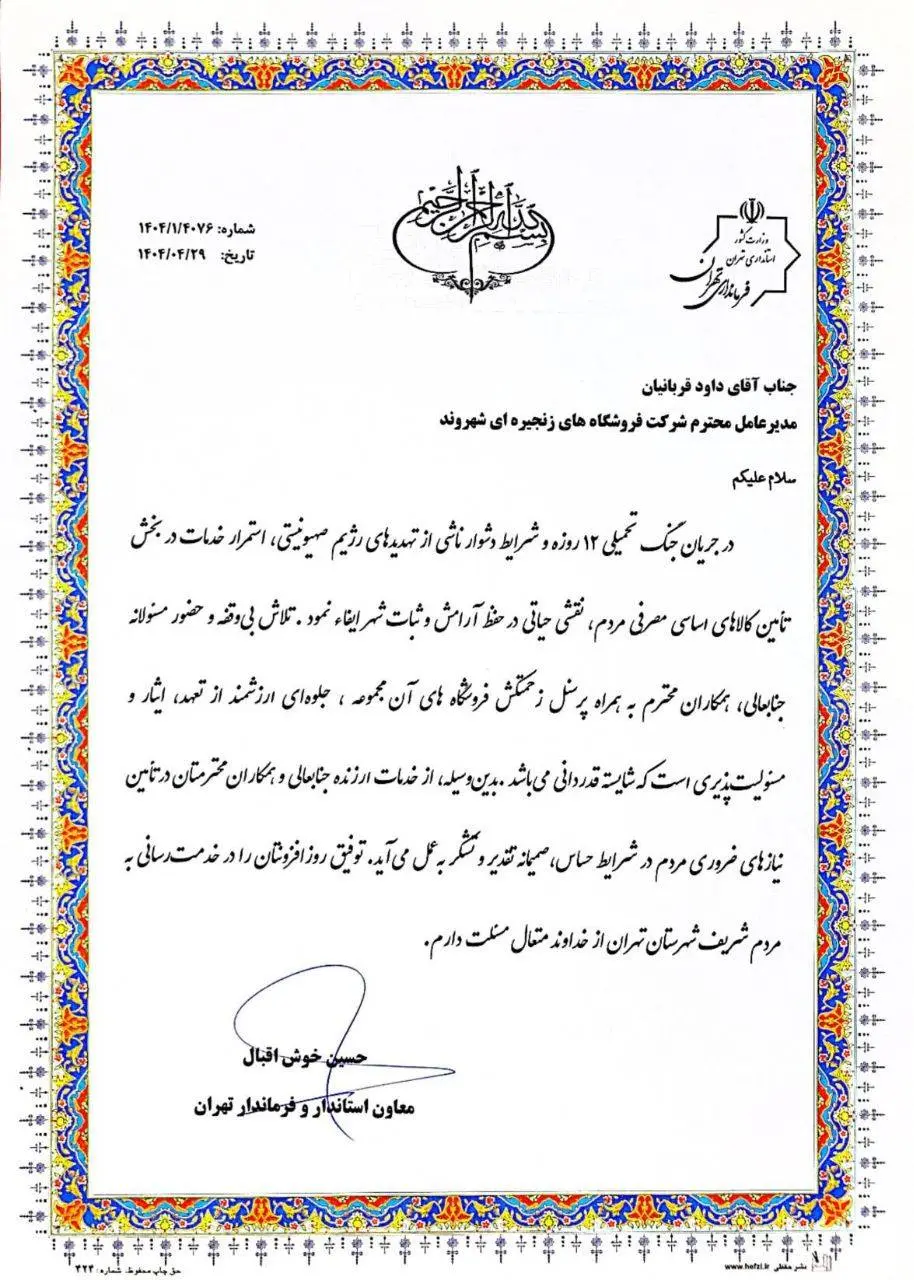 بسم الله الرحمن الرحیم
وزارت کشور
استانداری تهران
فرمانداری تهران
شماره: ۱۴۰۴/۱/۴۰۷۶
تاریخ: ۱۴۰۴/۰۴/۲۹
جناب آقای داود قربانیان
مدیرعامل محترم شرکت فروشگاه های زنجیره ای شهروند
سلام علیکم
در جریان جنگ تحمیلی ۱۲ روزه و شرایط دشوار ناشی از تهدیدهای رژیم صهیونیستی، استمرار خدمات در بخش
تأمین کالاهای اساسی مصرفی مردم، نقشی حیاتی در حفظ آرامش و ثبات شهر ایفاء نمود. تلاش بی‌وقفه و حضور مسئولانه
جنابعالی، همکاران محترم به همراه پرسنل زحمتکش فروشگاه های آن مجموعه، جلوه‌ای ارزشمند از تعهد، ایثار و
مسئولیت‌پذیری است که شایسته قدردانی می‌باشد. بدین‌وسیله، از خدمات ارزنده جنابعالی و همکاران محترمتان در تأمین
نیازهای ضروری مردم در شرایط حساس، صمیمانه تقدیر و تشکر به عمل می‌آید. توفیق روزافزونتان را در خدمت‌رسانی به
مردم شریف شهرستان تهران از خداوند متعال مسئلت دارم.
حسین خوش اقبال
معاون استاندار و فرماندار تهران
نشر حفظی www.hefzi.ir
حق چاپ محفوظ، شماره: ۴۲۴